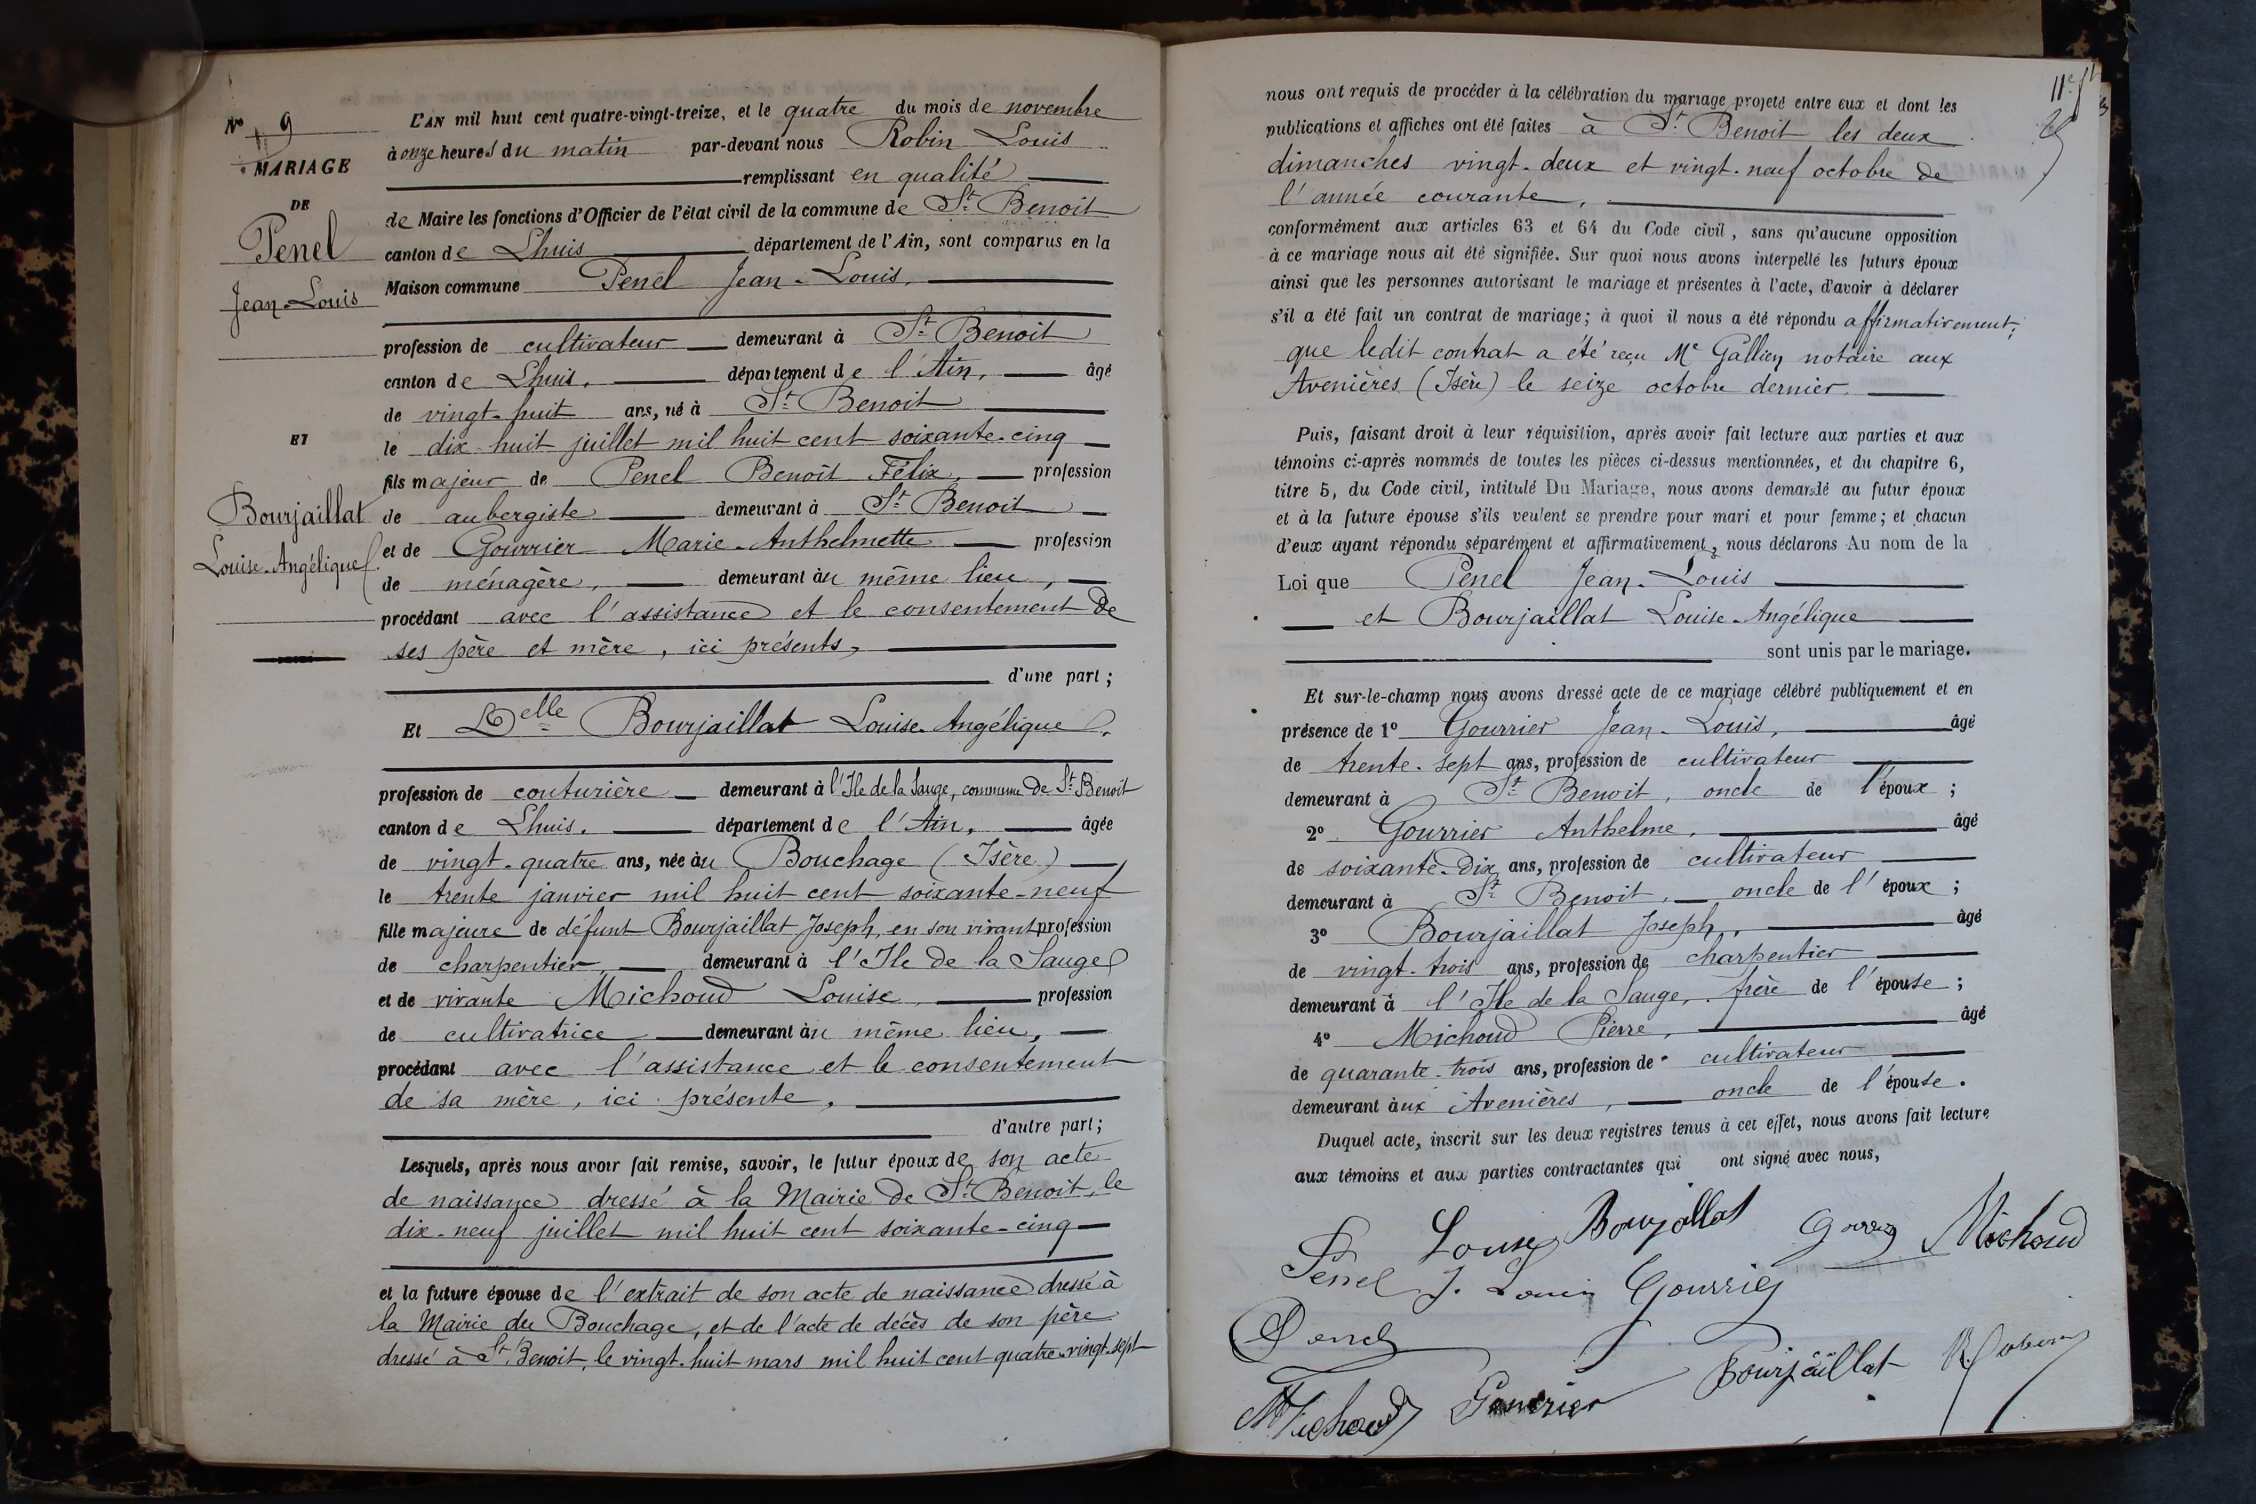 N° 9
MARIAGE
DE
Penel
Jean-Louis
ET
Bourjaillat
Louise-Angélique
L'AN mil huit cent quatre-vingt-treize, et le quatre du mois de novembre
à onze heures du matin par-devant nous Robin Louis
remplissant en qualité
de Maire les fonctions d'Officier de l'état civil de la commune de St Benoit
canton de Lhuis département de l'Ain, sont comparus en la
Maison commune Penel Jean-Louis,
profession de cultivateur demeurant à St Benoit
canton de Lhuis. département de l'Ain, âgé
de vingt-huit ans, né à St Benoit
le dix-huit juillet mil huit cent soixante-cinq
fils majeur de Penel Benoit Félix, profession
de aubergiste demeurant à St Benoit
et de Gourrier Marie-Anthelmette profession
de ménagère, demeurant au même lieu,
procédant avec l'assistance et le consentement de
ses père et mère, ici présents,
d'une part;
Et Delle Bourjaillat Louise-Angélique,
profession de couturière demeurant à l'Ile de la Sauge, commune de St Benoit
canton de Lhuis. département de l'Ain, âgée
de vingt-quatre ans, née au Bouchage (Isère)
le trente janvier mil huit cent soixante-neuf
fille majeure de défunt Bourjaillat Joseph, en son vivant profession
de charpentier, demeurant à l'Ile de la Sauge
et de vivante Michoud Louise profession
de cultivatrice demeurant au même lieu,
procédant avec l'assistance et le consentement
de sa mère, ici présente,
d'autre part;
Lesquels, après nous avoir fait remise, savoir, le futur époux de son acte
de naissance dressé à la Mairie de St Benoit, le
dix-neuf juillet mil huit cent soixante-cinq
et la future épouse de l'extrait de son acte de naissance dressé à
la Mairie du Bouchage, et de l'acte de décès de son père
dressé à St Benoit, le vingt-huit mars mil huit cent quatre-vingt-sept
nous ont requis de procéder à la célébration du mariage projeté entre eux et dont les
publications et affiches ont été faites à St Benoit les deux
dimanches vingt-deux et vingt-neuf octobre de
l'année courante,
conformément aux articles 63 et 64 du Code civil, sans qu'aucune opposition
à ce mariage nous ait été signifiée. Sur quoi nous avons interpellé les futurs époux
ainsi que les personnes autorisant le mariage et présentes à l'acte, d'avoir à déclarer
s'il a été fait un contrat de mariage; à quoi il nous a été répondu affirmativement,
que ledit contrat a été reçu Me Gallien notaire aux
Avenières (Isère) le seize octobre dernier.
Puis, faisant droit à leur réquisition, après avoir fait lecture aux parties et aux
témoins ci-après nommés de toutes les pièces ci-dessus mentionnées, et du chapitre 6,
titre 5, du Code civil, intitulé Du Mariage, nous avons demandé au futur époux
et à la future épouse s'ils veulent se prendre pour mari et pour femme; et chacun
d'eux ayant répondu séparément et affirmativement, nous déclarons Au nom de la
Loi que Penel Jean-Louis
et Bourjaillat Louise-Angélique
sont unis par le mariage.
Et sur-le-champ nous avons dressé acte de ce mariage célébré publiquement et en
présence de 1° Gourrier Jean-Louis, âgé
de trente-sept ans, profession de cultivateur
demeurant à St Benoit, oncle de l'époux;
2° Gourrier Anthelme, âgé
de soixante-dix ans, profession de cultivateur
demeurant à St Benoit, oncle de l'époux;
3° Bourjaillat Joseph, âgé
de vingt-trois ans, profession de charpentier
demeurant à l'Ile de la Sauge, frère de l'épouse;
4° Michoud Pierre, âgé
de quarante-trois ans, profession de cultivateur
demeurant aux Avenières, oncle de l'épouse.
Duquel acte, inscrit sur les deux registres tenus à cet effet, nous avons fait lecture
aux témoins et aux parties contractantes qui ont signé avec nous,
Louise Bourjallat Michoud
Penel J. Louis Gourrier
Penel
Michoud Gourrier Bourjaillat